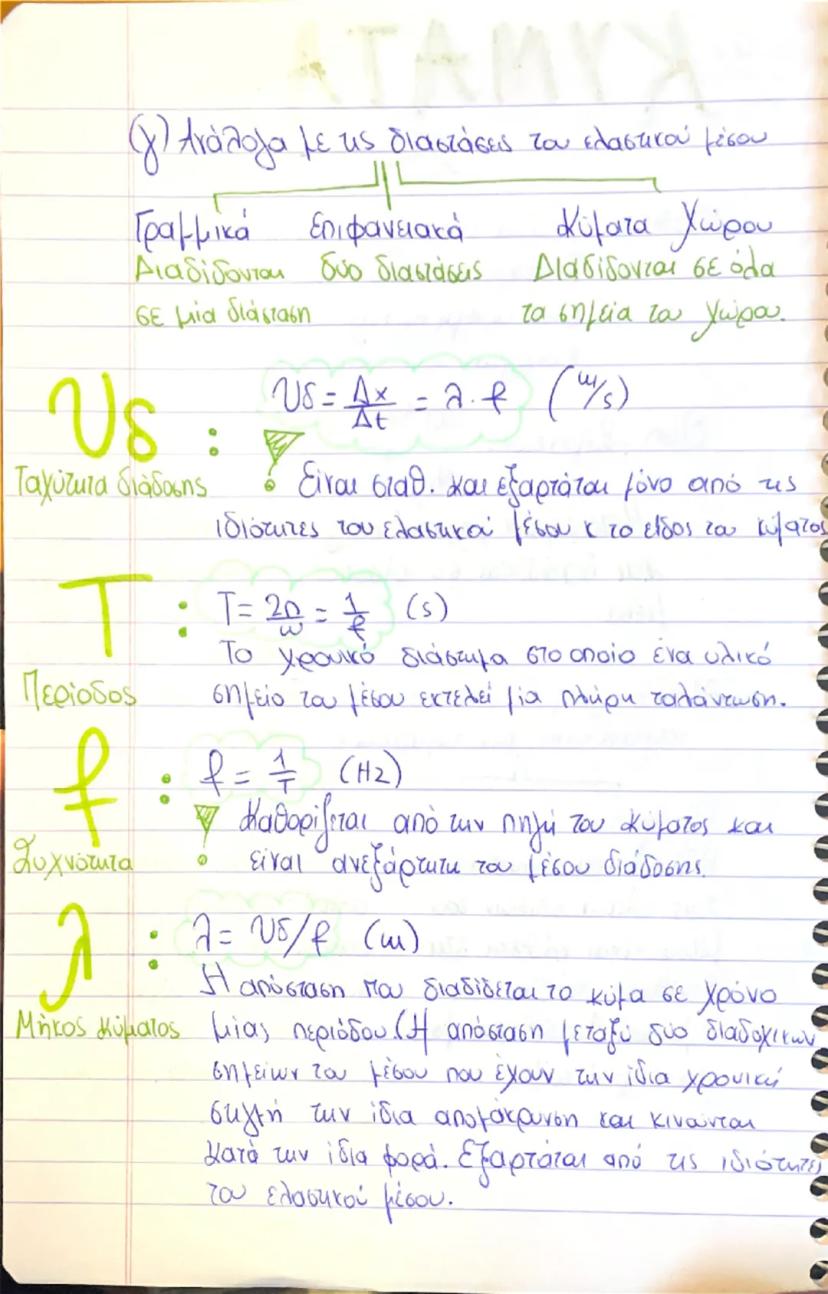 (γ) Ανάλογα με τις διαστάσεις του ελαστικού μέσου
Γραμμικά Επιφανειακά Κύματα Χώρου
Διαδίδονται δύο διαστάσεις Διαδίδονται σε όλα
σε μία διάσταση τα σημεία του χώρου.
υδ : υδ = Δx/Δt = λ · f (m/s)
Ταχύτητα διάδοσης ! Είναι σταθ. και εξαρτάται μόνο από τις
ιδιότητες του ελαστικού μέσου κ το είδος του κύματος
T : T = 2π/ω = 1/f (s)
Το χρονικό διάστημα στο οποίο ένα υλικό
Περίοδος σημείο του μέσου εκτελεί μία πλήρη ταλάντωση.
f : f = 1/T (Hz)
! Καθορίζεται από την πηγή του κύματος και
Συχνότητα είναι ανεξάρτητη του μέσου διάδοσης.
λ : λ = υδ/f (m)
Η απόσταση που διαδίδεται το κύμα σε χρόνο
Μήκος Κύματος μίας περιόδου. (Η απόσταση μεταξύ δύο διαδοχικών
σημείων του μέσου που έχουν την ίδια χρονική
στιγμή την ίδια απομάκρυνση και κινούνται
κατά την ίδια φορά. Εξαρτάται από τις ιδιότητες
του ελαστικού μέσου.